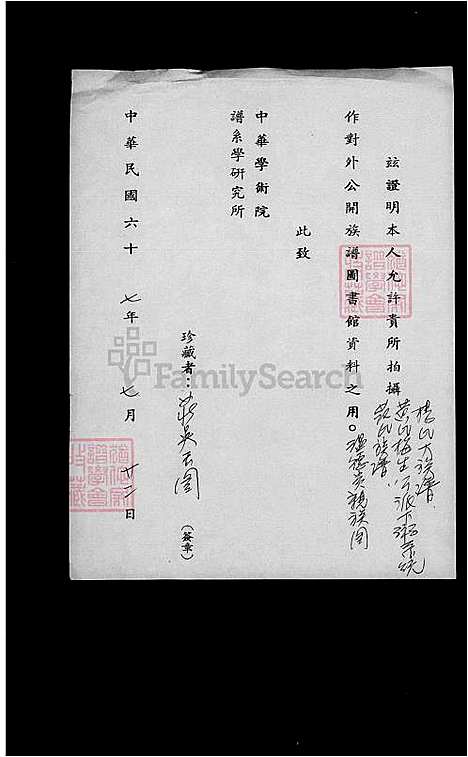 茲證明本人允許貴所拍攝
楊氏大族譜
黃氏梅生公派下
氏族譜
作對外公開族譜圖書館資料之用。
親族圖
此致
中華學術院
譜系學研究所
珍藏者：
(簽章)
中華民國六十七年七月廿二日
FamilySearch